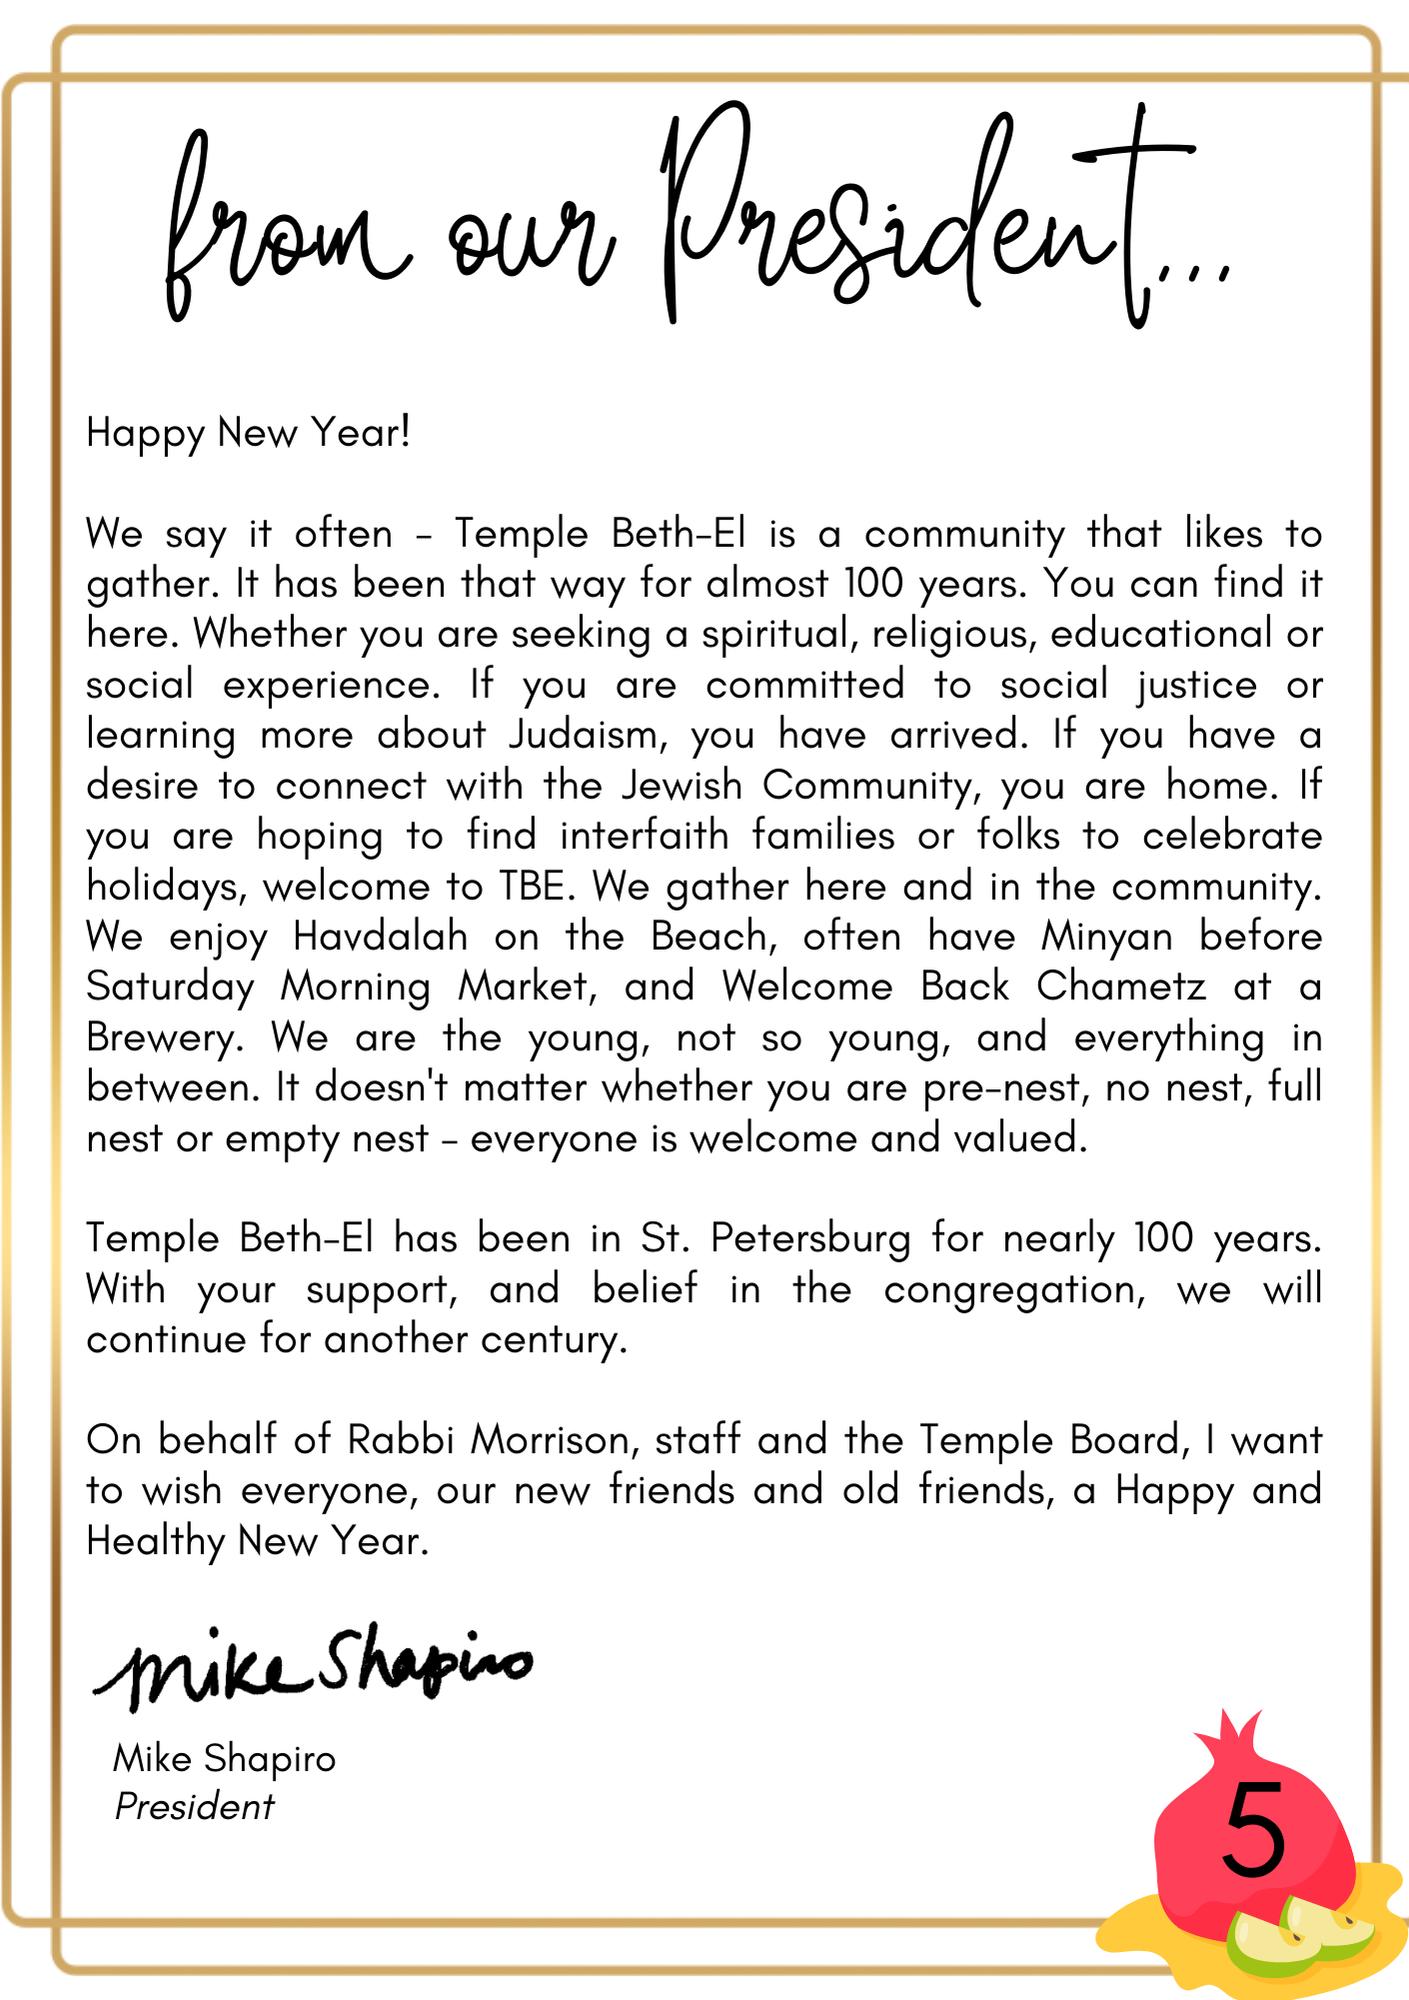 from our President...
Happy New Year!
We say it often - Temple Beth-El is a community that likes to
gather. It has been that way for almost 100 years. You can find it
here. Whether you are seeking a spiritual, religious, educational or
social experience. If you are committed to social justice or
learning more about Judaism, you have arrived. If you have a
desire to connect with the Jewish Community, you are home. If
you are hoping to find interfaith families or folks to celebrate
holidays, welcome to TBE. We gather here and in the community.
We enjoy Havdalah on the Beach, often have Minyan before
Saturday Morning Market, and Welcome Back Chametz at a
Brewery. We are the young, not so young, and everything in
between. It doesn't matter whether you are pre-nest, no nest, full
nest or empty nest - everyone is welcome and valued.
Temple Beth-El has been in St. Petersburg for nearly 100 years.
With your support, and belief in the congregation, we will
continue for another century.
On behalf of Rabbi Morrison, staff and the Temple Board, I want
to wish everyone, our new friends and old friends, a Happy and
Healthy New Year.
Mike Shapiro
Mike Shapiro
President
5